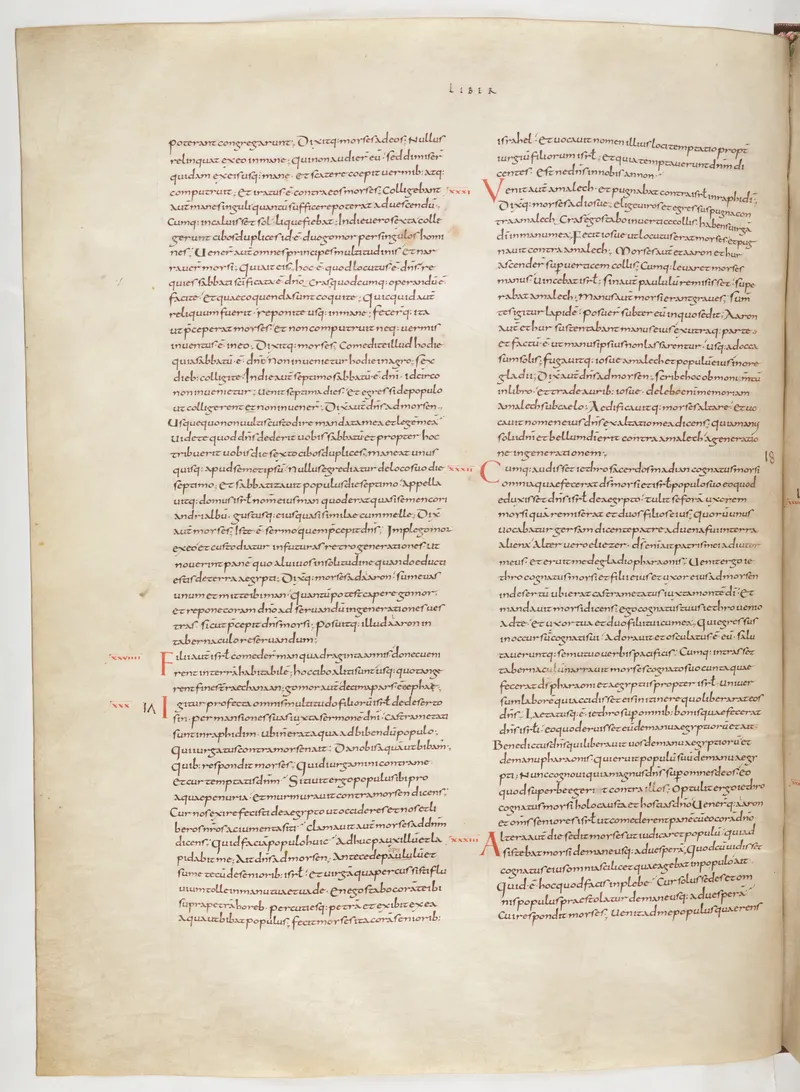 LIBER
poterant congregarunt; Dixitq: morses ad eos; Nullus
relinquat ex eo in mane; qui non audier̄ eū; sed dimiser̄
quidam ex eis usq: mane· et scatere coepit uermib: atq:
computruit; et iratus ē contra eos morses; Colligebant
aut̄ mane singuli quantū sufficere poterat ad uescendū;
Cumq: incaluisset sol· liquefiebat; In die uero sexta colle
gerunt cibos duplices· id ē· duo gomor per singulos homi
nes; Uener̄ aut̄ omnes principes multitudinis· et nar
rauer̄ morsi; qui ait eis; hoc ē quod locutus ē dn̄s; re
quies sabbati sc̄ificata ē dn̄o; Cras quodcumq: operandū ē
facite· et quae coquenda sunt coquite; quicquid aut̄
reliquum fuerit· reponite usq: in mane; fecer̄q: ita
ut p̄ceperat morses· et non computruit neq: uermis
inuentus ē in eo; Dixitq: morses; Comedite illud hodie
quia sabbatū ē· dn̄o non inuenietur hodie in agro; sex
dieb: colligite; In die aut̄ septimo sabbatū ē dn̄i· idcirco
non inuenietur; uenit septima dies· et egressi de populo
ut colligerent et non inuener̄; Dixit aut̄ dn̄s ad morsen;
Usquequo non uultis custodire mandata mea et legem mea
Uidete quod dn̄s dederit uobis sabbatū et propter hoc
tribuerit uobis die sexto cibos duplices; maneat unus
quisq: apud semetipsū· nullus egrediatur de loco suo die
septimo; et sabbatizauit populus die septimo· Appella
uitq: domus isrl̄· nom̄ eius man quod erat quasi semen cori
andri albū· gustusq: eius quasi similae cum melle; Dix̄
aut̄ morses; Iste ē sermo quem p̄cepit dn̄s; Imple gomor
ex eo et custodiatur in futuras retro generationes· ut
nouerint pane quo alui uos in solitudine quando educti
estis de terra aegypti; Dixitq: morses ad aaron· sume uas
unum et mitte ibi man· quantū potest capere gomor·
et repone coram dn̄o ad seruandū in generationes ues
tras· sicut p̄cepit dn̄s morsi; posuitq: illud aaron in
tabernaculo reseruandum;
xxviiii Filii aut̄ isrl̄ comeder̄ man quadraginta annis donec ueni
rent in terrā habitabilē; hoc cibo aliti sunt usq: quo tange
rent fines terrae chanaan; gomor aut̄ decima pars ē oephi;
xxx Igitur profecta omnis multitudo filiorū isrl̄ de deserto
sin· per mansiones suas iuxta sermonē dn̄i· castrametata
sunt in raphidim· ubi n̄ erat aqua ad bibendū populo;
Qui iurgatus contra morsen ait; Da nobis aquā ut bibam;
Quib: respondit morses; Quid iurgamini contra me·
et cur temptatis dn̄m; Sitiuit ergo populus ibi pro
aquae penuria· et murmurauit contra morsen dicens;
Cur nos exire fecisti de aegypto ut occideres et nos et li
beros n̄ros ac iumenta siti; clamauit aut̄ morses ad dn̄m
dicens; Quid faciā populo huic· Adhuc pauxillū et la
pidabit me; Ait dn̄s ad morsen; Antecede populū et
sume tecū de seniorib: isrl̄· et uirgā qua percussisti flu
uium tolle in manu tua et uade· en ego stabo corā te ibi
supra petrā horeb· percutiesq: petrā et exibit ex ea
aqua ut bibat populus; fecit morses ita corā seniorib:
israhel· et uocauit nomen illius loci temptatio propt̄
iurgiū filiorum isrl̄; et quia temptauerunt dn̄m di
centes; est ne dn̄s in nobis an non·
xxxi Uenit aut̄ amalech· et pugnabat contra isrl̄ in raphidi;
Dixitq: morses ad iosue; elige uiros et egressus pugna con
tra amalech; Cras ego stabo in uertice collis· habens uirgā
di in manu mea; fecit iosue ut locutus erat morses et pug
nauit contra amalech; Morses aut̄ et aaron et hur
ascender̄ sup uerticem collis; Cumq: leuaret morses
manus· uincebat isrl̄; sin aut̄ paululū remisisset· supe
rabat amalech; manus aut̄ morsi erant graues; sum
tes igitur lapidē· posuer̄ subter eū in quo sedit; Aaron
aut̄ et hur sustentabant manus eius ex utraq: parte·
et factū ē ut manus ipsius non lassarentur· usq: ad occa
sum solis; fugauitq: iosue amalech et populū eius in ore
gladii; Dixit aut̄ dn̄s ad morsen; scribe hoc ob monimtū
in libro· et trade aurib: iosue· delebo eni memoriam
amalech sub caelo; Aedificauitq: morses altare· et uo
cauit nomen eius dn̄s exaltatio mea dicens; quia manus
solius dn̄i et bellum di erit contra amalech a generatio
ne in generationem;
18
xxxii Cumq: audisset iethro sacerdos madian cognatus morsi
omnia quae fecerat ds̄ morsi et isrl̄ populo suo eo quod
eduxisset dn̄s isrl̄ de aegypto· tulit seforā uxorem
morsi quā remiserat et duos filios eius; quorū unus
uocabatur gersam dicente patre aduena fui in terra
aliena· Alter uero eliezer· ds̄ eni ait patris mei adiutor
meus· et eruit me de gladio pharaonis; Uenit ergo ie
thro cognatus morsi et filii eius et uxor eius ad morsen
in desertū ubi erat castrametatus iuxta montē di; et
mandauit morsi dicens; ego cognatus tuus iethro uenio
ad te· et uxor tua et duo filii tui cum ea; Qui egressus
in occursū cognati sui· Adorauit et osculatus ē eū· salu
taueruntq: se mutuo uerbis pacificis; Cumq: intrasset
tabernaculū narrauit morses cognato suo cuncta quae
fecerat ds̄ pharaoni et aegyptiis propter isrl̄· Uniuer
sum laborē qui accidisset eis in itinere quo liberarat eos
dn̄s; Laetatusq: ē iethro sup omnib: bonis quae fecerat
dn̄s isrl̄i· eo quod eruisset eū de manu aegyptiorū et ait·
Benedictus dn̄s qui liberauit uos de manu aegyptiorū et
de manu pharaonis· qui eruit populū suū de manu aegy
pti; Nunc cognoui quia magnus dn̄s sup omnes deos· eo
quod superbe egerint contra illos; Optulit ergo iethro
cognatus morsi holocausta et hostias dn̄o Uener̄q: aaron
et om̄s seniores isrl̄ ut comederent panē cū eo corā dn̄o;
xxxiii Altera aut̄ die sedit morses ut iudicaret populū· qui ad
sistebat morsi de mane usq: ad uesperā; Quod cū uidisset
cognatus eius omnia scilicet quae agebat in populo ait·
Quid ē hoc quod facis in plebe· Cur solus sedes et om
nis populus praestolatur de mane usq: ad uesperā·
Cui respondit morses; Uenit ad me populus quaerens